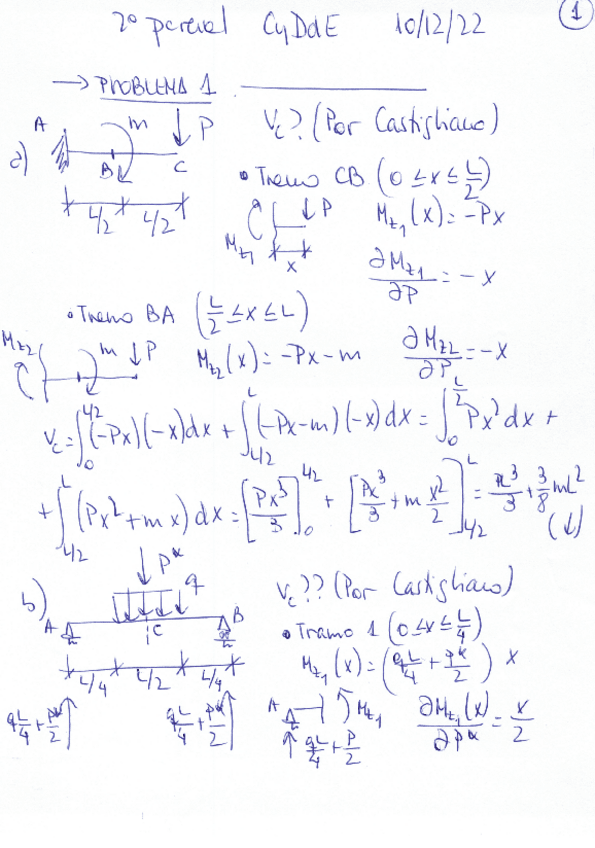 2º parcial CyDdE 10/12/22 1
→ PROBLEMA 1
a) A m P B C L/2 L/2
V_c? (Por Castigliano)
• Tramo CB (0 ≤ x ≤ L/2)
M_z1 P x
M_z1(x) = -Px
∂M_z1/∂P = -x
• Tramo BA (L/2 ≤ x ≤ L)
M_z2 m P
M_z2(x) = -Px - m
∂M_z2/∂P = -x
V_c = ∫_0^{L/2} (-Px)(-x)dx + ∫_{L/2}^L (-Px-m)(-x)dx = ∫_0^{L/2} Px² dx +
+ ∫_{L/2}^L (Px² + mx)dx = [Px³/3]_0^{L/2} + [Px³/3 + m x²/2]_{L/2}^L = PL³/3 + 3/8 mL² (↓)
b) P* q A C B L/4 L/2 L/4
qL/4 + P*/2 qL/4 + P*/2
V_c?? (Por Castigliano)
• Tramo 1 (0 ≤ x ≤ L/4)
M_z1(x) = (qL/4 + P*/2) x
A M_z1 qL/4 + P/2
∂M_z1(x)/∂P* = x/2